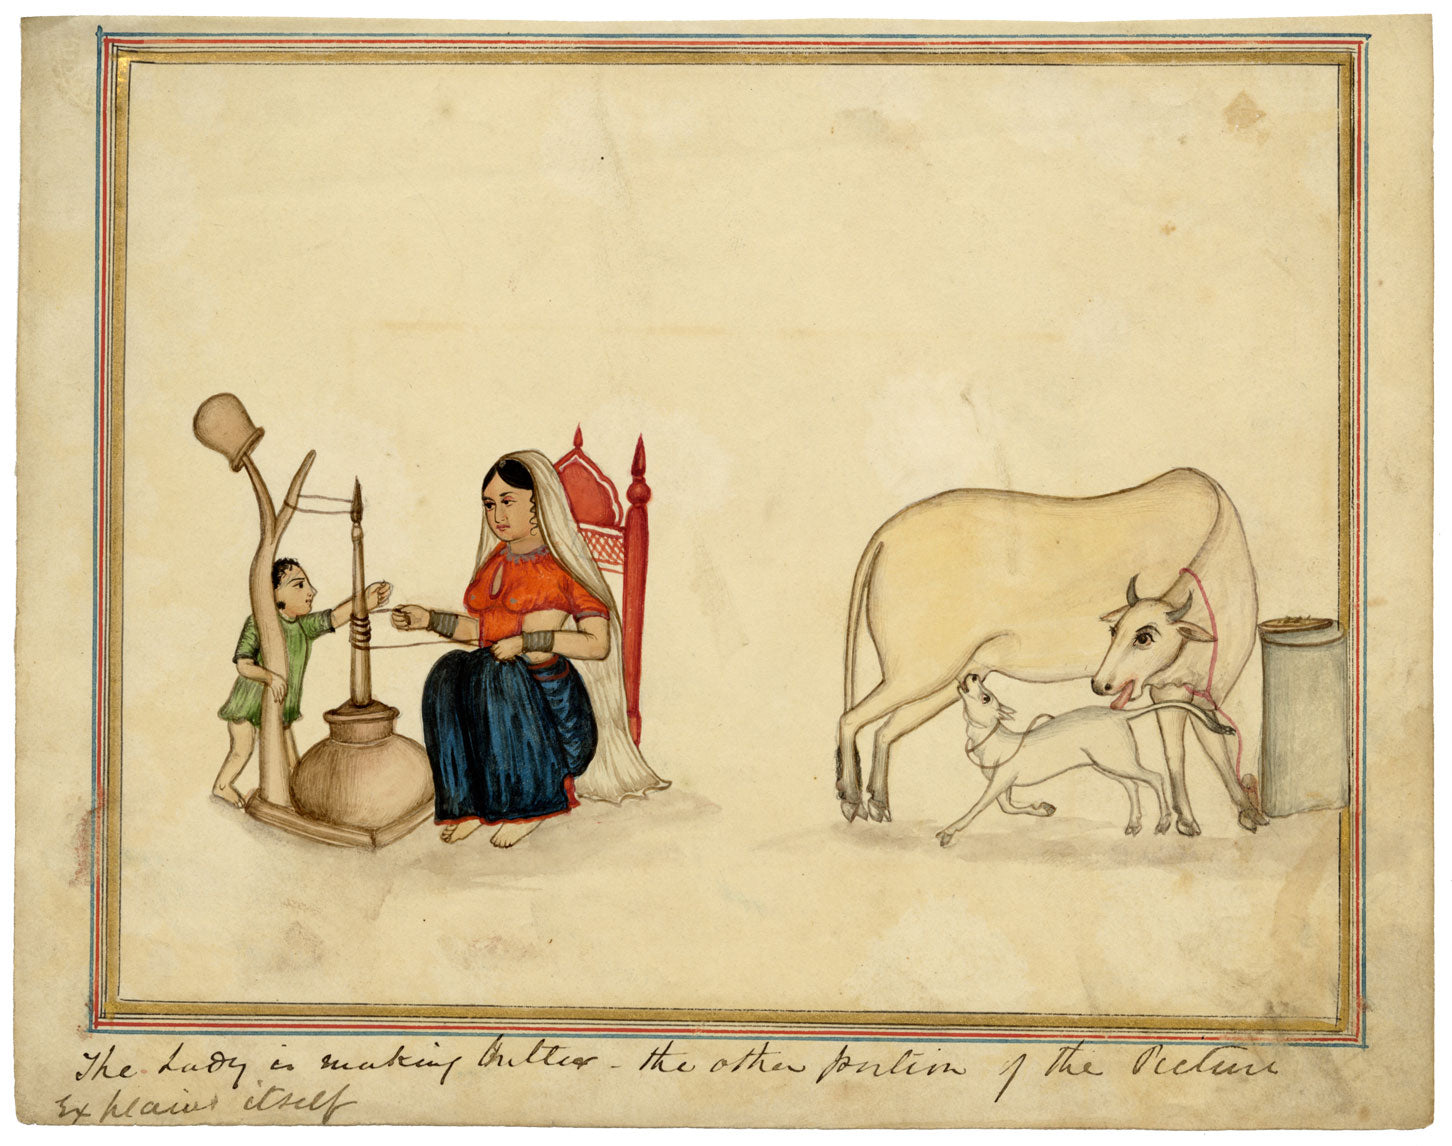 The Lady is making Butter - the other portion of the Picture
Explains itself